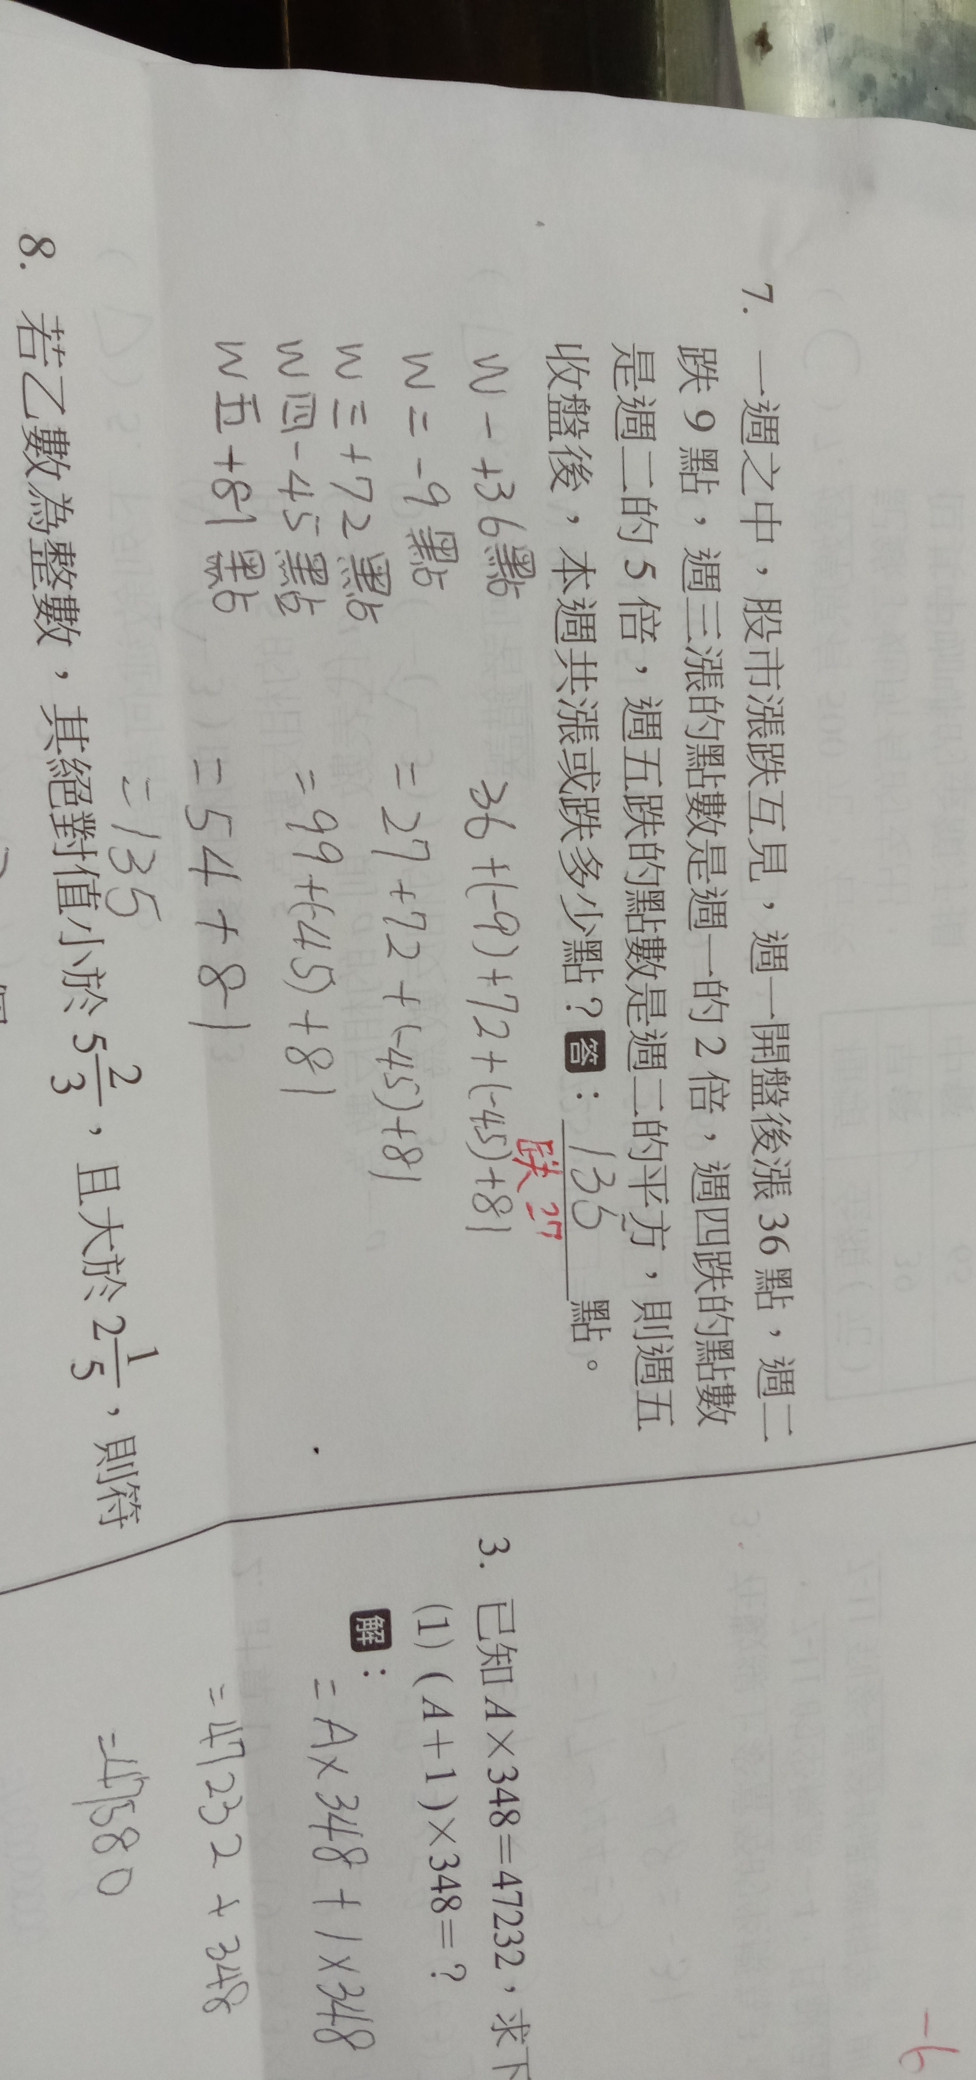 7. 一週之中，股市漲跌互見，週一開盤後漲 36 點，週二
跌 9 點，週三漲的點數是週一的 2 倍，週四跌的點數
是週二的 5 倍，週五跌的點數是週二的平方，則週五
收盤後，本週共漲或跌多少點？答：135點。
跌 27
W一+36點
W二-9點
W三+72點
W四-45點
W五+81點
36+(-9)+72+(-45)+81
=27+72+(-45)+81
=99+(-45)+81
=54+81
=135
8. 若乙數為整數，其絕對值小於 5 2/3，且大於 2 1/5，則符
3. 已知 A×348=47232，求下
(1) (A+1)×348=？
解：
=A×348+1×348
=47232+348
=47580
-6